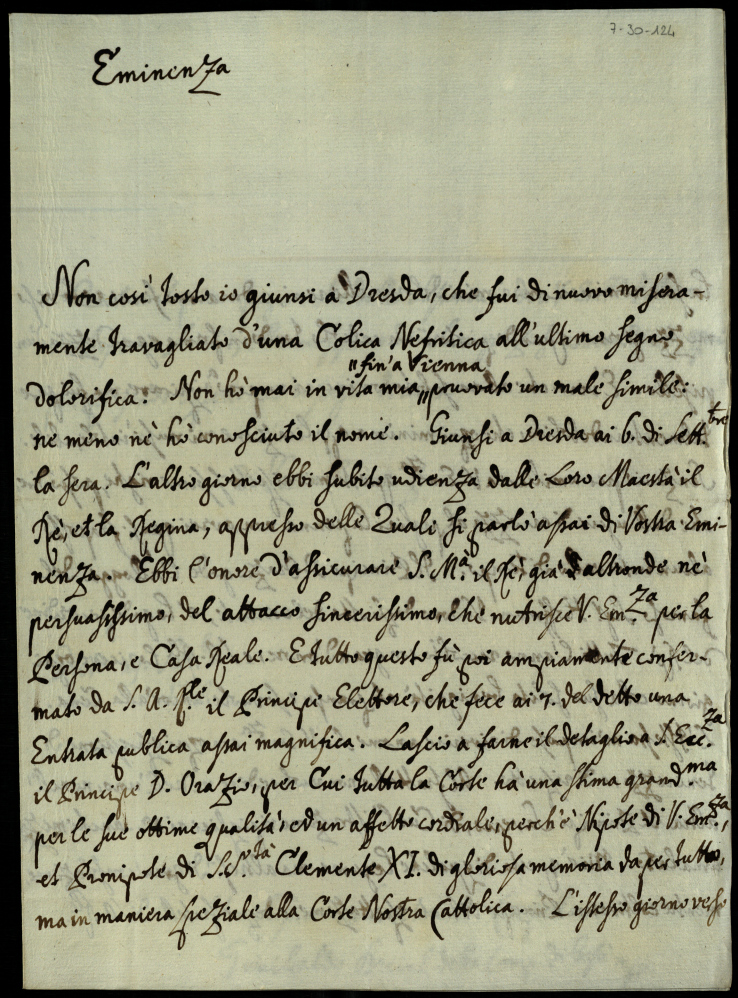 7-30-124
Eminenza
Non così tosto io giunsi à Dresda, che fui di nuovo misera-
mente travagliato d'una Colica Nefritica all'ultimo segno
"fin'a Vienna
dolorifica. Non hò mai in vita mia "pruovato un male simile:
ne meno nè hò conosciuto il nome. Giunsi a Dresda ai 6. di Sett.bre
la sera. L'altro giorno ebbi subito udienza dalle Loro Maestà il
Rè, et la Regina, appresso delle Quali si parlò assai di Vostra Emi-
nenza. Ebbi l'onore d'assicurare S. M.à il Rè, già d'altronde nè
persuasissimo, del attacco sincerissimo, che nutrisce V. Em.za per la
Persona, e Casa Reale. E tutto questo fù poi ampiamente confer-
mato da S. A. R.le il Principe Elettore, che fece ai 7. del detto una
Entrata publica assai magnifica. Lascio a farne il detaglio a S. Ecc.za
il Principe D. Orazio, per Cui tutta la Corte hà una stima grand.ma
per le sue ottime qualità, ed un affetto cordiale, perch'è Nipote di V. Em.za,
et Pronipote di S. S.tà Clemente XI. di gloriosa memoria da per tutto,
ma in maniera speziale alla Corte Nostra Cattolica. L'istesso giorno verso